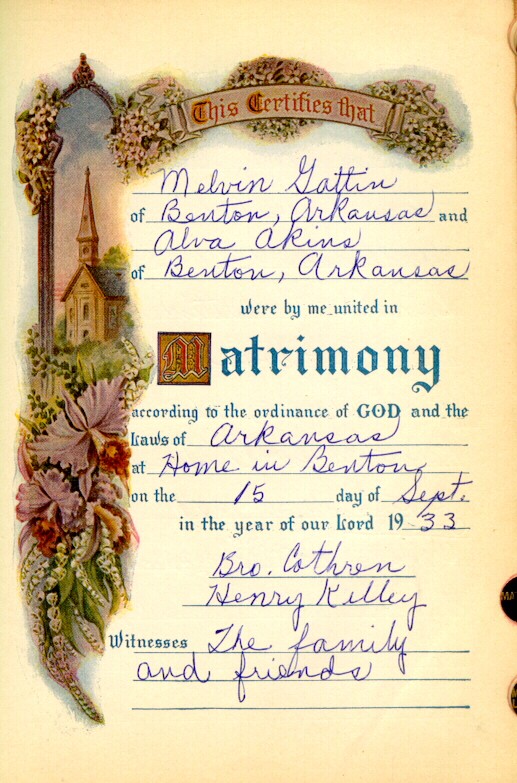 This Certifies that
Melvin Gattin
of Benton, Arkansas and
Alva Akins
of Benton, Arkansas
were by me united in
Matrimony
according to the ordinance of GOD and the
Laws of Arkansas
at Home in Benton
on the 15 day of Sept.
in the year of our Lord 1933
Bro. Cothren
Henry Killey
Witnesses The family
and friends